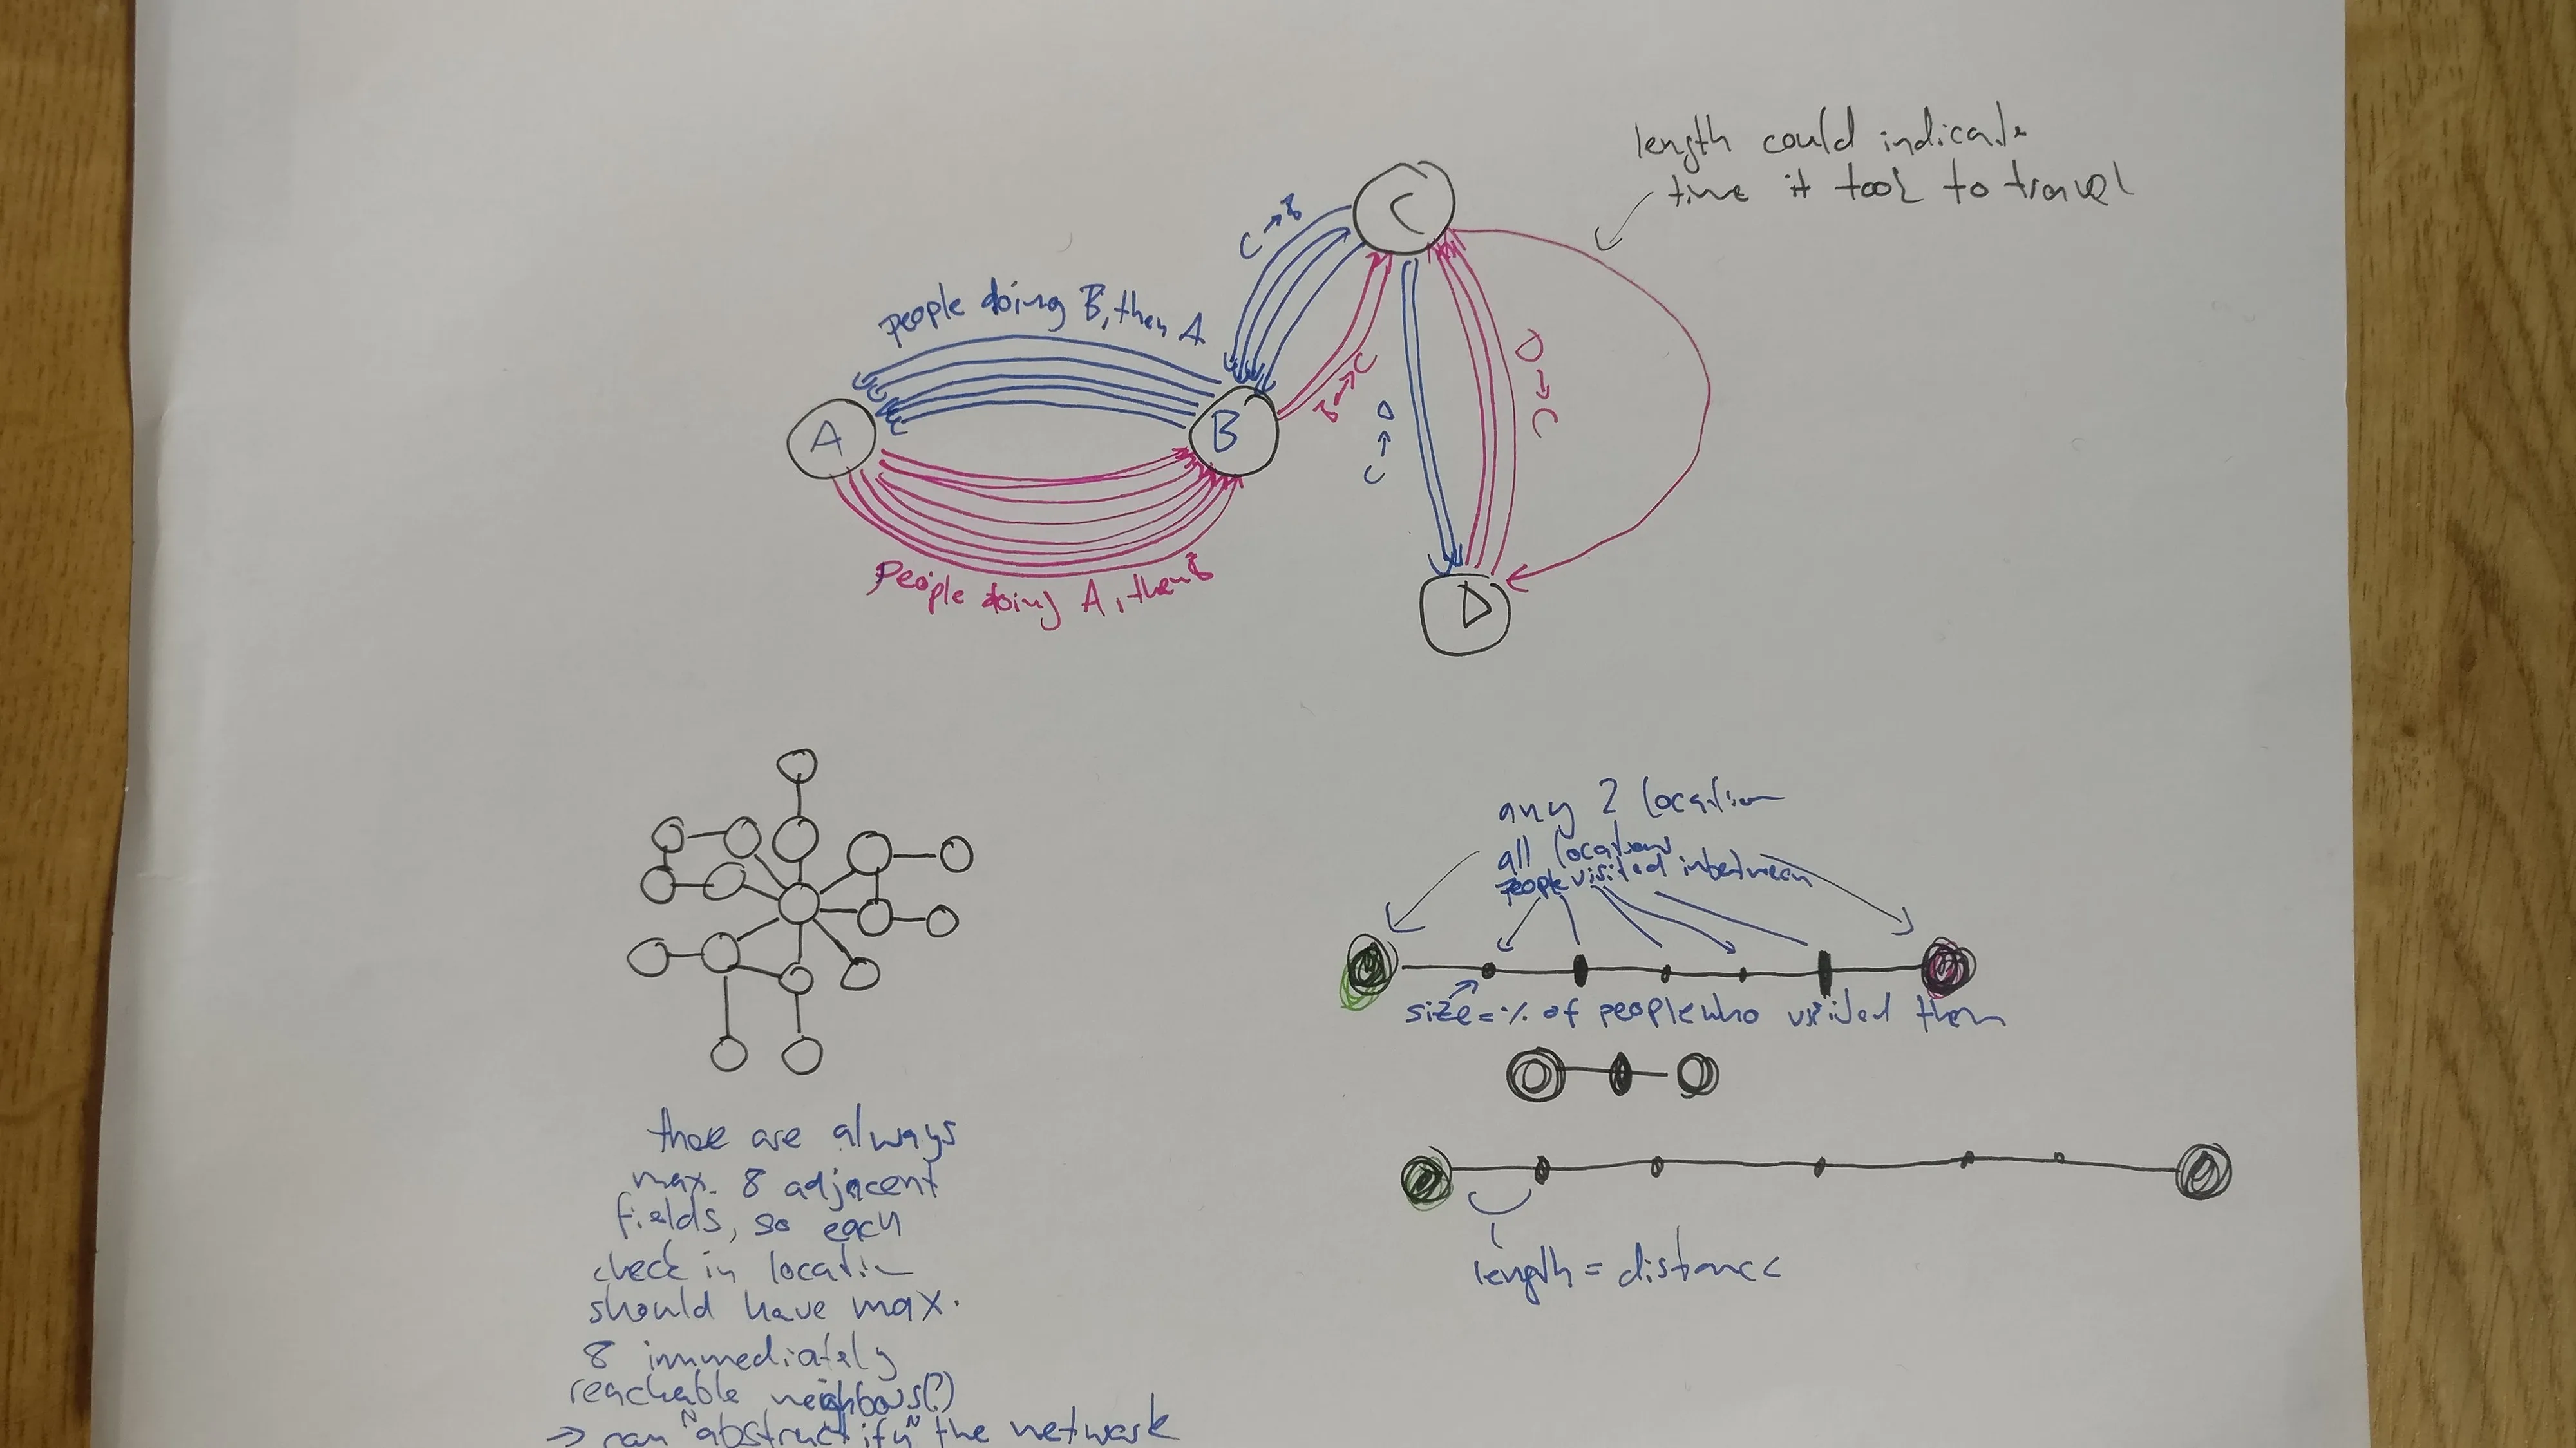 length could indicate
time it took to travel
C
C → B
people doing B, then A
A
B
B → C
C → D
D → C
people doing A, then B
D
any 2 location
all locations
people visited inbetween
size = % of people who visited them
length = distance
there are always
max. 8 adjacent
fields, so each
check in location
should have max.
8 immediately
reachable neighbours(?)
→ can "abstractify" the network